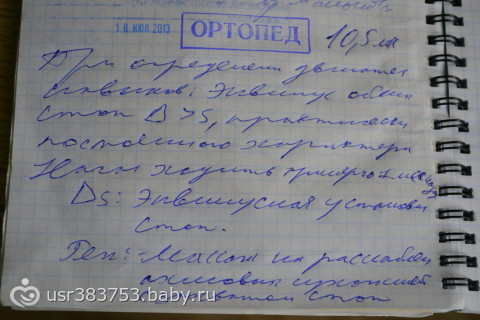 18 ИЮЛ 2013 ОРТОПЕД 10,5 м
При определени двигател
навыков: Эквинус обеих
стоп D>S, практически
постоянного характера
Начал ходить примерно 1 мес назад
Ds: Эквинусная установка
стоп.
Рек: - Массаж на расслабл
ахиловых сухожилий
стоп
usr383753.baby.ru